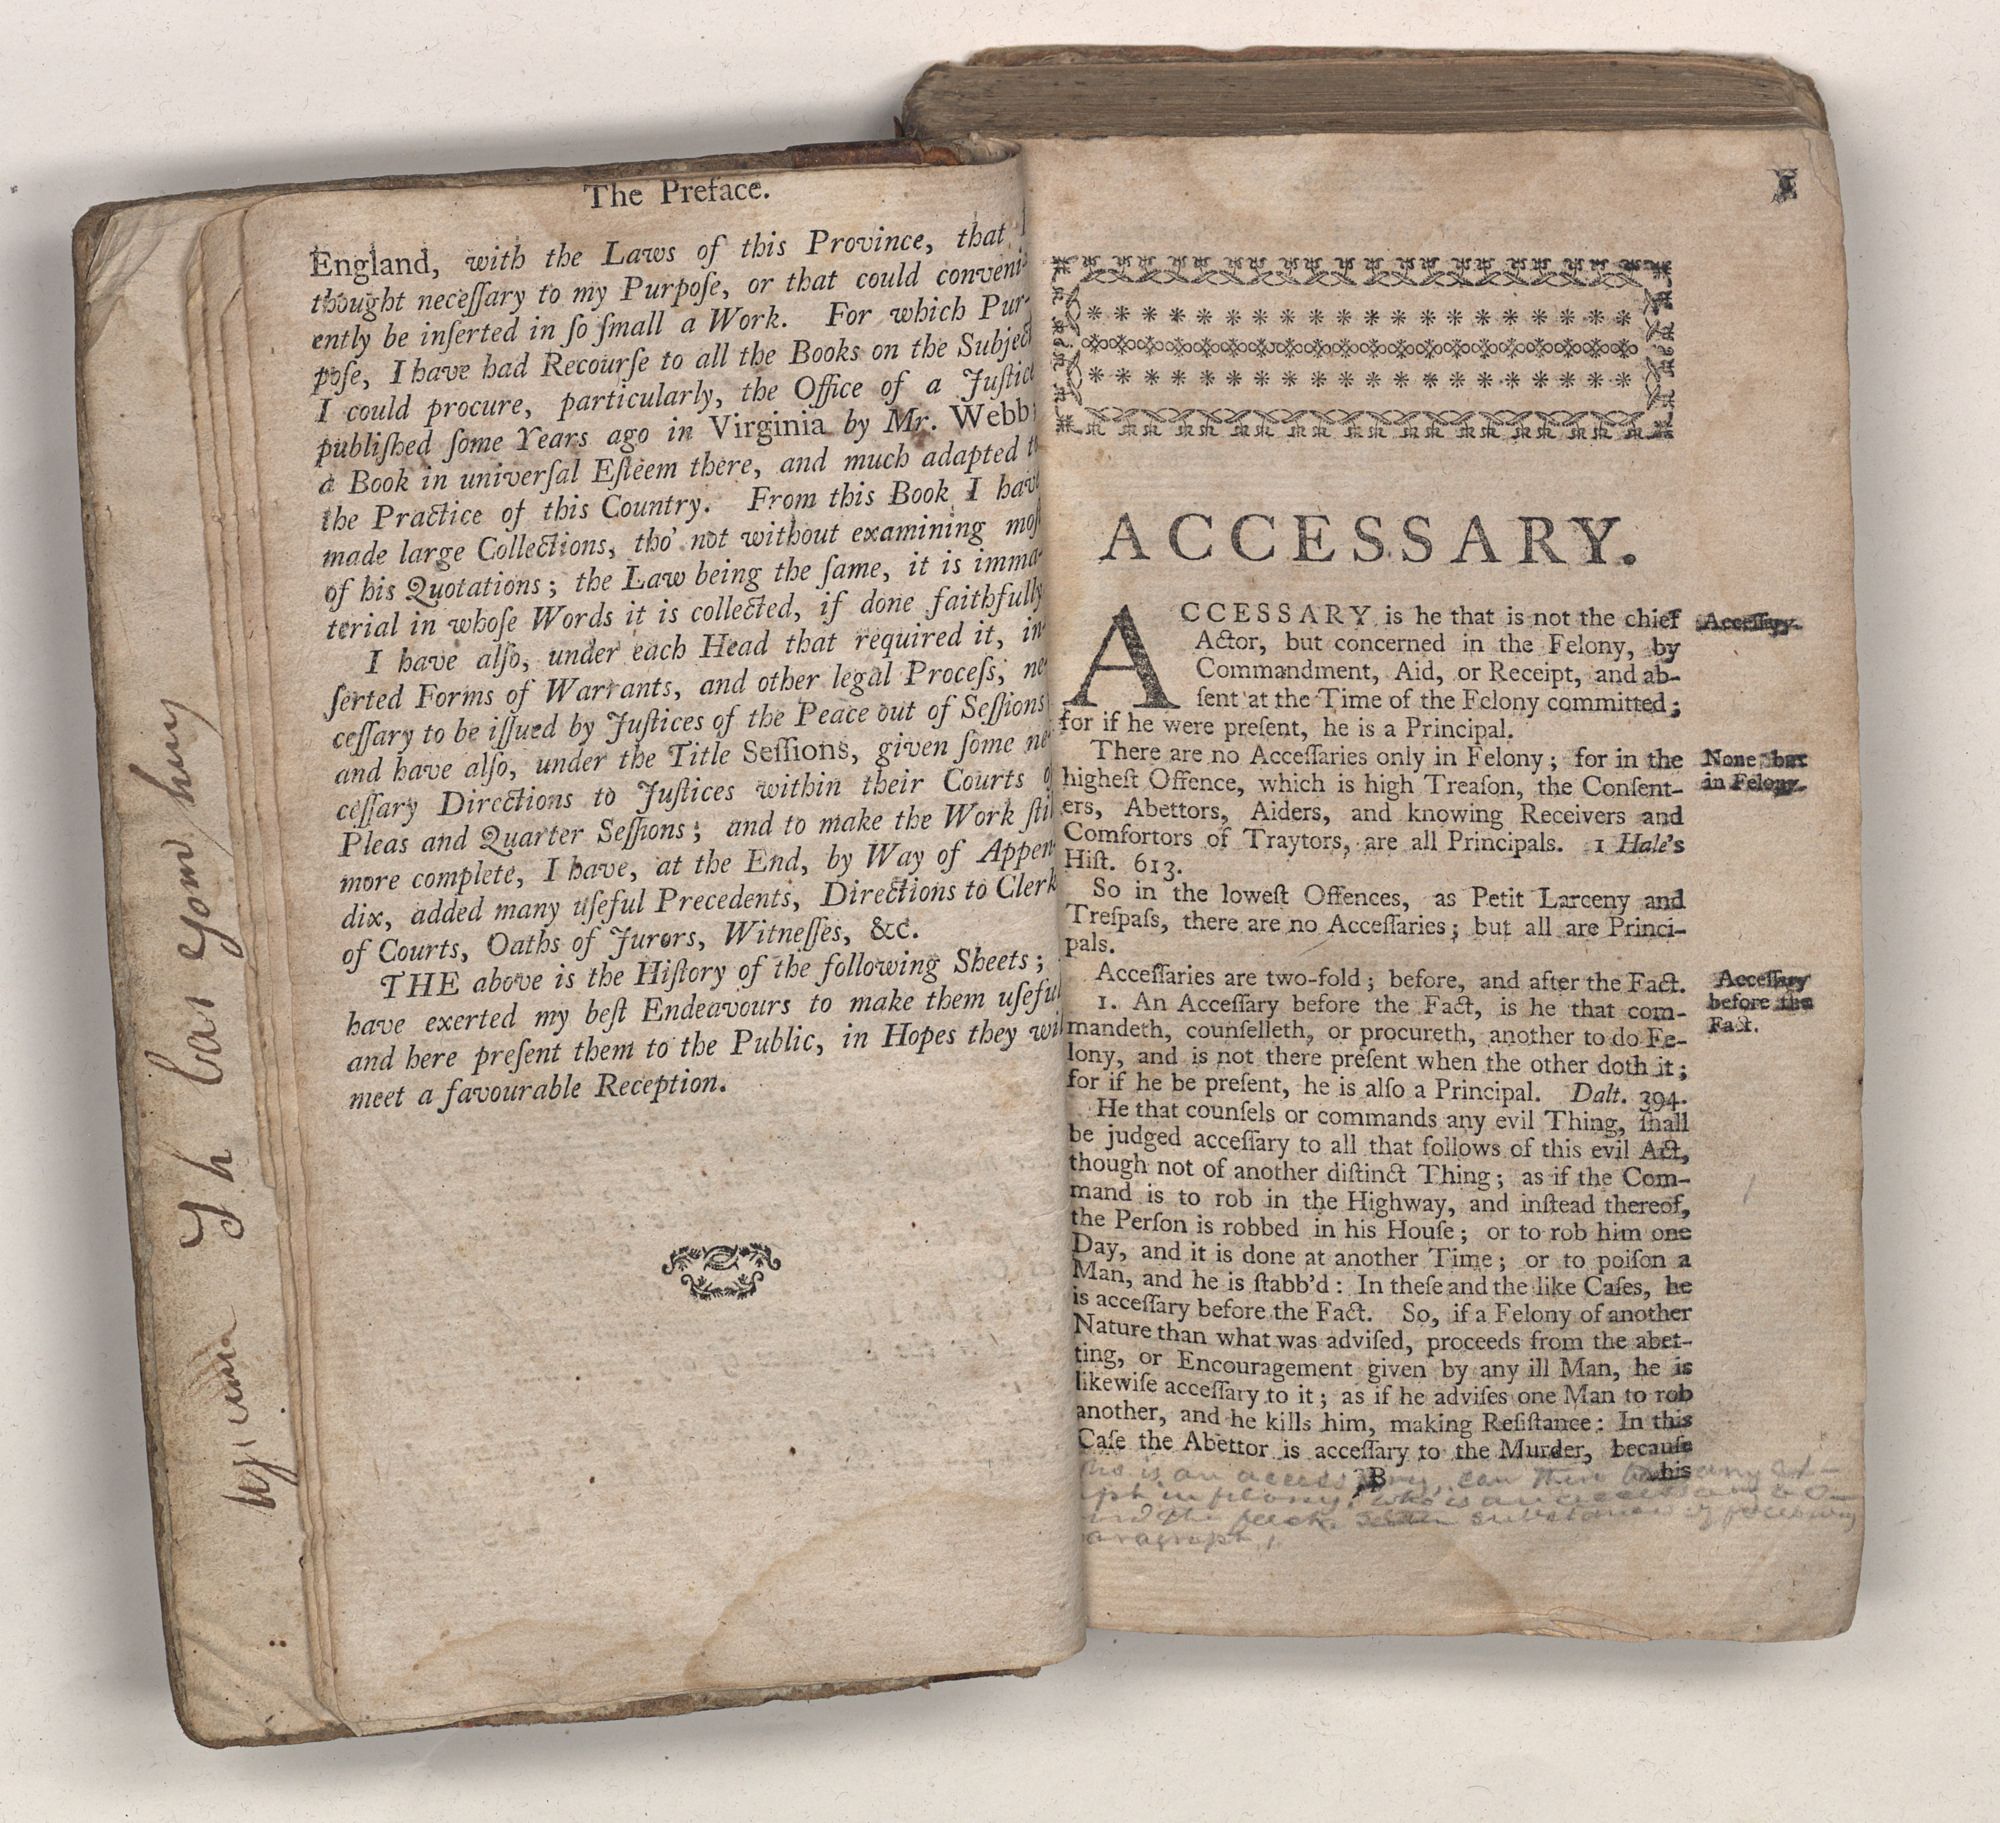 The Preface.
England, with the Laws of this Province, that I
thought neceſſary to my Purpoſe, or that could conveni-
ently be inſerted in ſo ſmall a Work. For which Pur-
poſe, I have had Recourſe to all the Books on the Subject
I could procure, particularly, the Office of a Juſtice
publiſhed ſome Years ago in Virginia by Mr. Webb
a Book in univerſal Eſteem there, and much adapted to
the Practice of this Country. From this Book I have
made large Collections, tho' not without examining moſt
of his Quotations; the Law being the ſame, it is imma-
terial in whoſe Words it is collected, if done faithfully
I have alſo, under each Head that required it, in-
ſerted Forms of Warrants, and other legal Proceſs, ne-
ceſſary to be iſſued by Juſtices of the Peace out of Seſſions
and have alſo, under the Title Seſſions, given ſome ne-
ceſſary Directions to Juſtices within their Courts of
Pleas and Quarter Seſſions; and to make the Work ſtill
more complete, I have, at the End, by Way of Appen-
dix, added many uſeful Precedents, Directions to Clerk
of Courts, Oaths of Jurors, Witneſſes, &c.
THE above is the Hiſtory of the following Sheets;
have exerted my beſt Endeavours to make them uſeful
and here preſent them to the Public, in Hopes they will
meet a favourable Reception.
ACCESSARY.
ACCESSARY is he that is not the chief
Actor, but concerned in the Felony, by
Commandment, Aid, or Receipt, and ab-
ſent at the Time of the Felony committed;
for if he were preſent, he is a Principal.
Acceſſary.
There are no Acceſſaries only in Felony; for in the
higheſt Offence, which is high Treaſon, the Conſent-
ers, Abettors, Aiders, and knowing Receivers and
Comfortors of Traytors, are all Principals. 1 Hale's
Hiſt. 613.
None but
in Felony.
So in the loweſt Offences, as Petit Larceny and
Treſpaſs, there are no Acceſſaries; but all are Princi-
pals.
Acceſſaries are two-fold; before, and after the Fact.
1. An Acceſſary before the Fact, is he that com-
mandeth, counſelleth, or procureth, another to do Fe-
lony, and is not there preſent when the other doth it;
for if he be preſent, he is alſo a Principal. Dalt. 394.
Acceſſary
before the
Fact.
He that counſels or commands any evil Thing, ſhall
be judged acceſſary to all that follows of this evil Act,
though not of another diſtinct Thing; as if the Com-
mand is to rob in the Highway, and inſtead thereof,
the Perſon is robbed in his Houſe; or to rob him one
Day, and it is done at another Time; or to poiſon a
Man, and he is ſtabb'd: In theſe and the like Caſes, he
is acceſſary before the Fact. So, if a Felony of another
Nature than what was adviſed, proceeds from the abet-
ting, or Encouragement given by any ill Man, he is
likewiſe acceſſary to it; as if he adviſes one Man to rob
another, and he kills him, making Reſiſtance: In this
Caſe the Abettor is acceſſary to the Murder, becauſe
B his